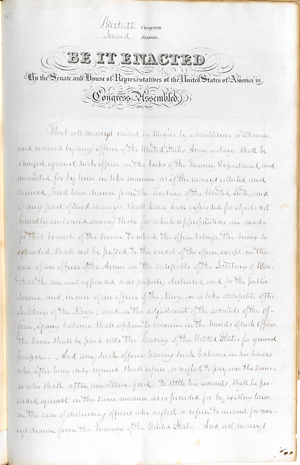 Thirtieth Congress
Second Session
BE IT ENACTED
By the Senate and House of Representatives of the United States of America in
Congress Assembled,
That all moneys raised in Mexico by contributions, or otherwise
and received by any officer of the United States Army or Navy shall be
charged against such officer in the books of the Treasury Department, and
accounted for by him in like manner as if the moneys collected and
received, had been drawn from the Treasury of the United States, and
if any part of said moneys shall have been expended for objects not
usually embraced among those for which appropriations are made
for that branch of the service to which the officer belongs, the sums so
expended shall not be passed to the credit of the officer, except in the
case of an officer of the Army, on the certificate of the Secretary of War,
that the amount expended was properly disbursed, and for the public
service and in case of an officer of the Navy, on a like certificate of the
Secretary of the Navy; and in the adjustment of the accounts of the of-
ficer, if any balance shall appear to remain in the hands of such officer
the same shall be paid into the Treasury of the United States for general
purposes. And any such officer having such balance in his hands
who after being duly required shall refuse, or neglect to pay over the same,
or who shall after due notice fail to settle his accounts shall be pro-
ceeded against in the same manner as is provided for by existing laws
in the case of disbursing officers who neglect or refuse to account for mon-
eys drawn from the Treasury of the United States. And all moneys